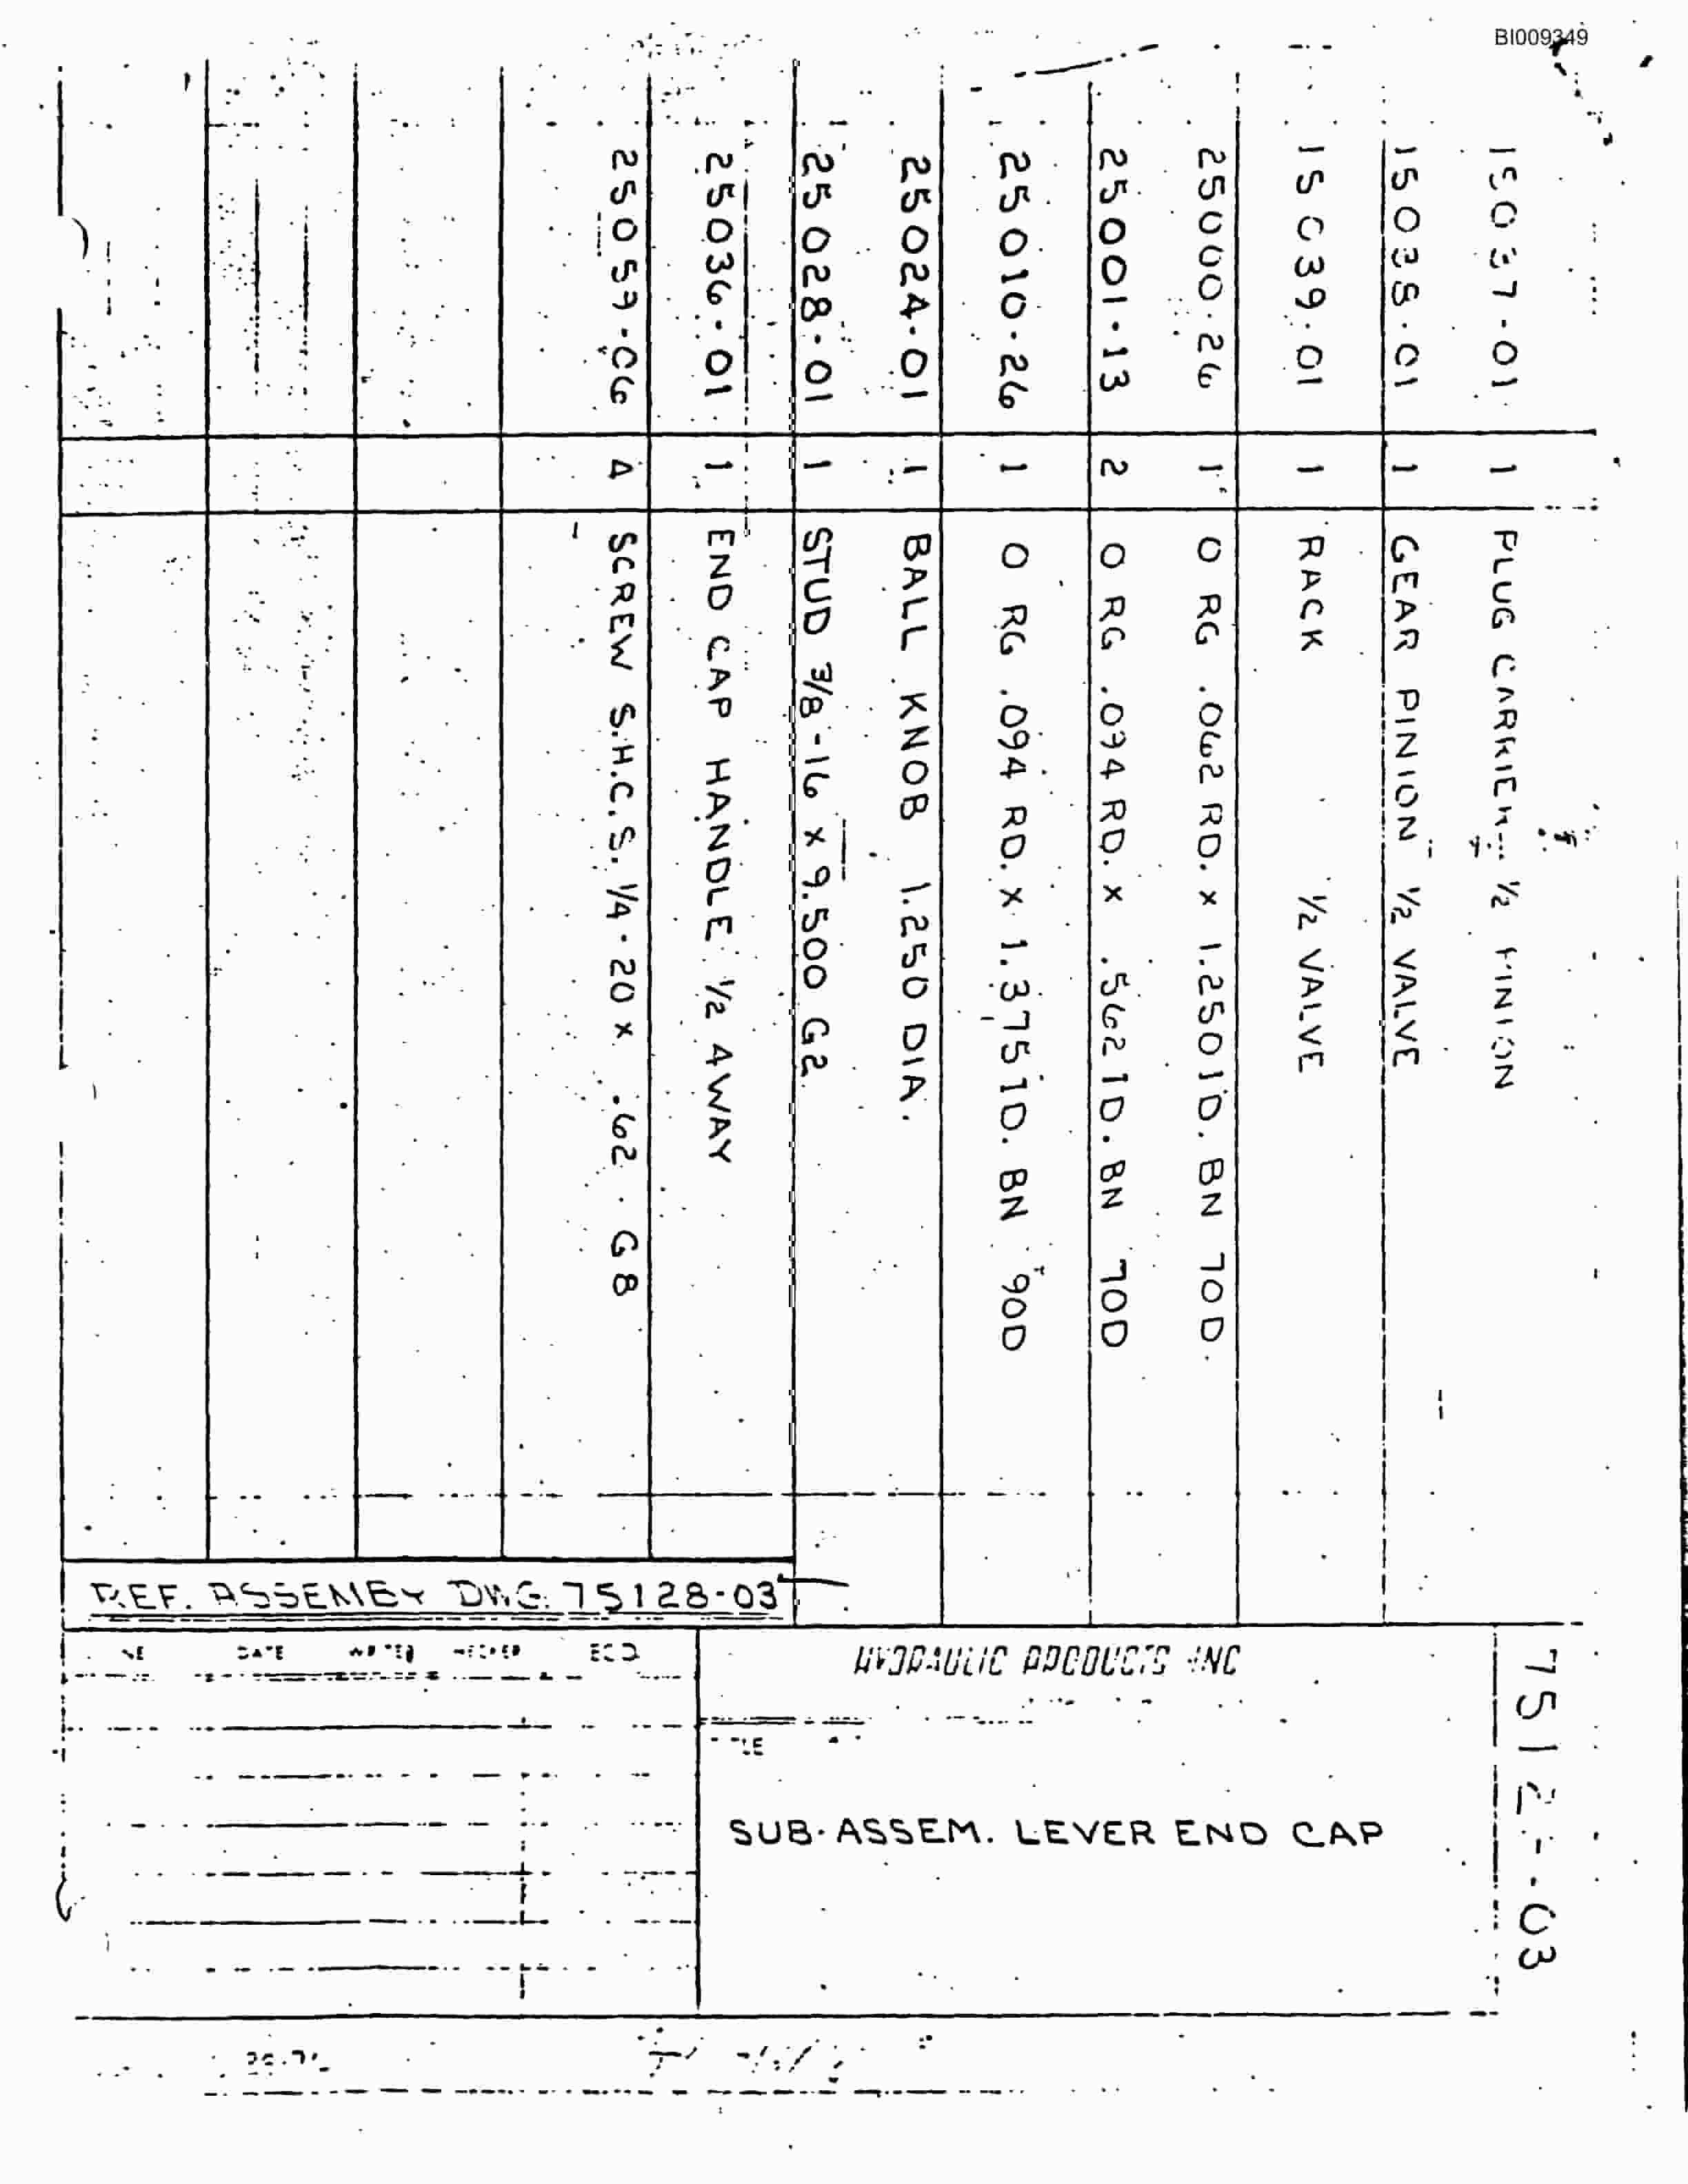 BI009349
15037-01 1 PLUG CARRIER 1/2 PINION
15038-01 1 GEAR PINION 1/2 VALVE
15039-01 1 RACK 1/2 VALVE
25000-26 1 O RG .062 RD. x 1.250 ID. BN 70D.
25001-13 2 O RG .094 RD. x .562 ID. BN 70D
25010-26 1 O RG .094 RD. x 1.375 ID. BN 90D
25024-01 1 BALL KNOB 1.250 DIA.
25028-01 1 STUD 3/8-16 x 9.500 G2
25036-01 1 END CAP HANDLE 1/2 4WAY
25059-06 4 SCREW S.H.C.S. 1/4-20 x .62 G8
REF. ASSEMBY DWG. 75128-03
DATE
HYDRAULIC PRODUCTS INC
SUB-ASSEM. LEVER END CAP